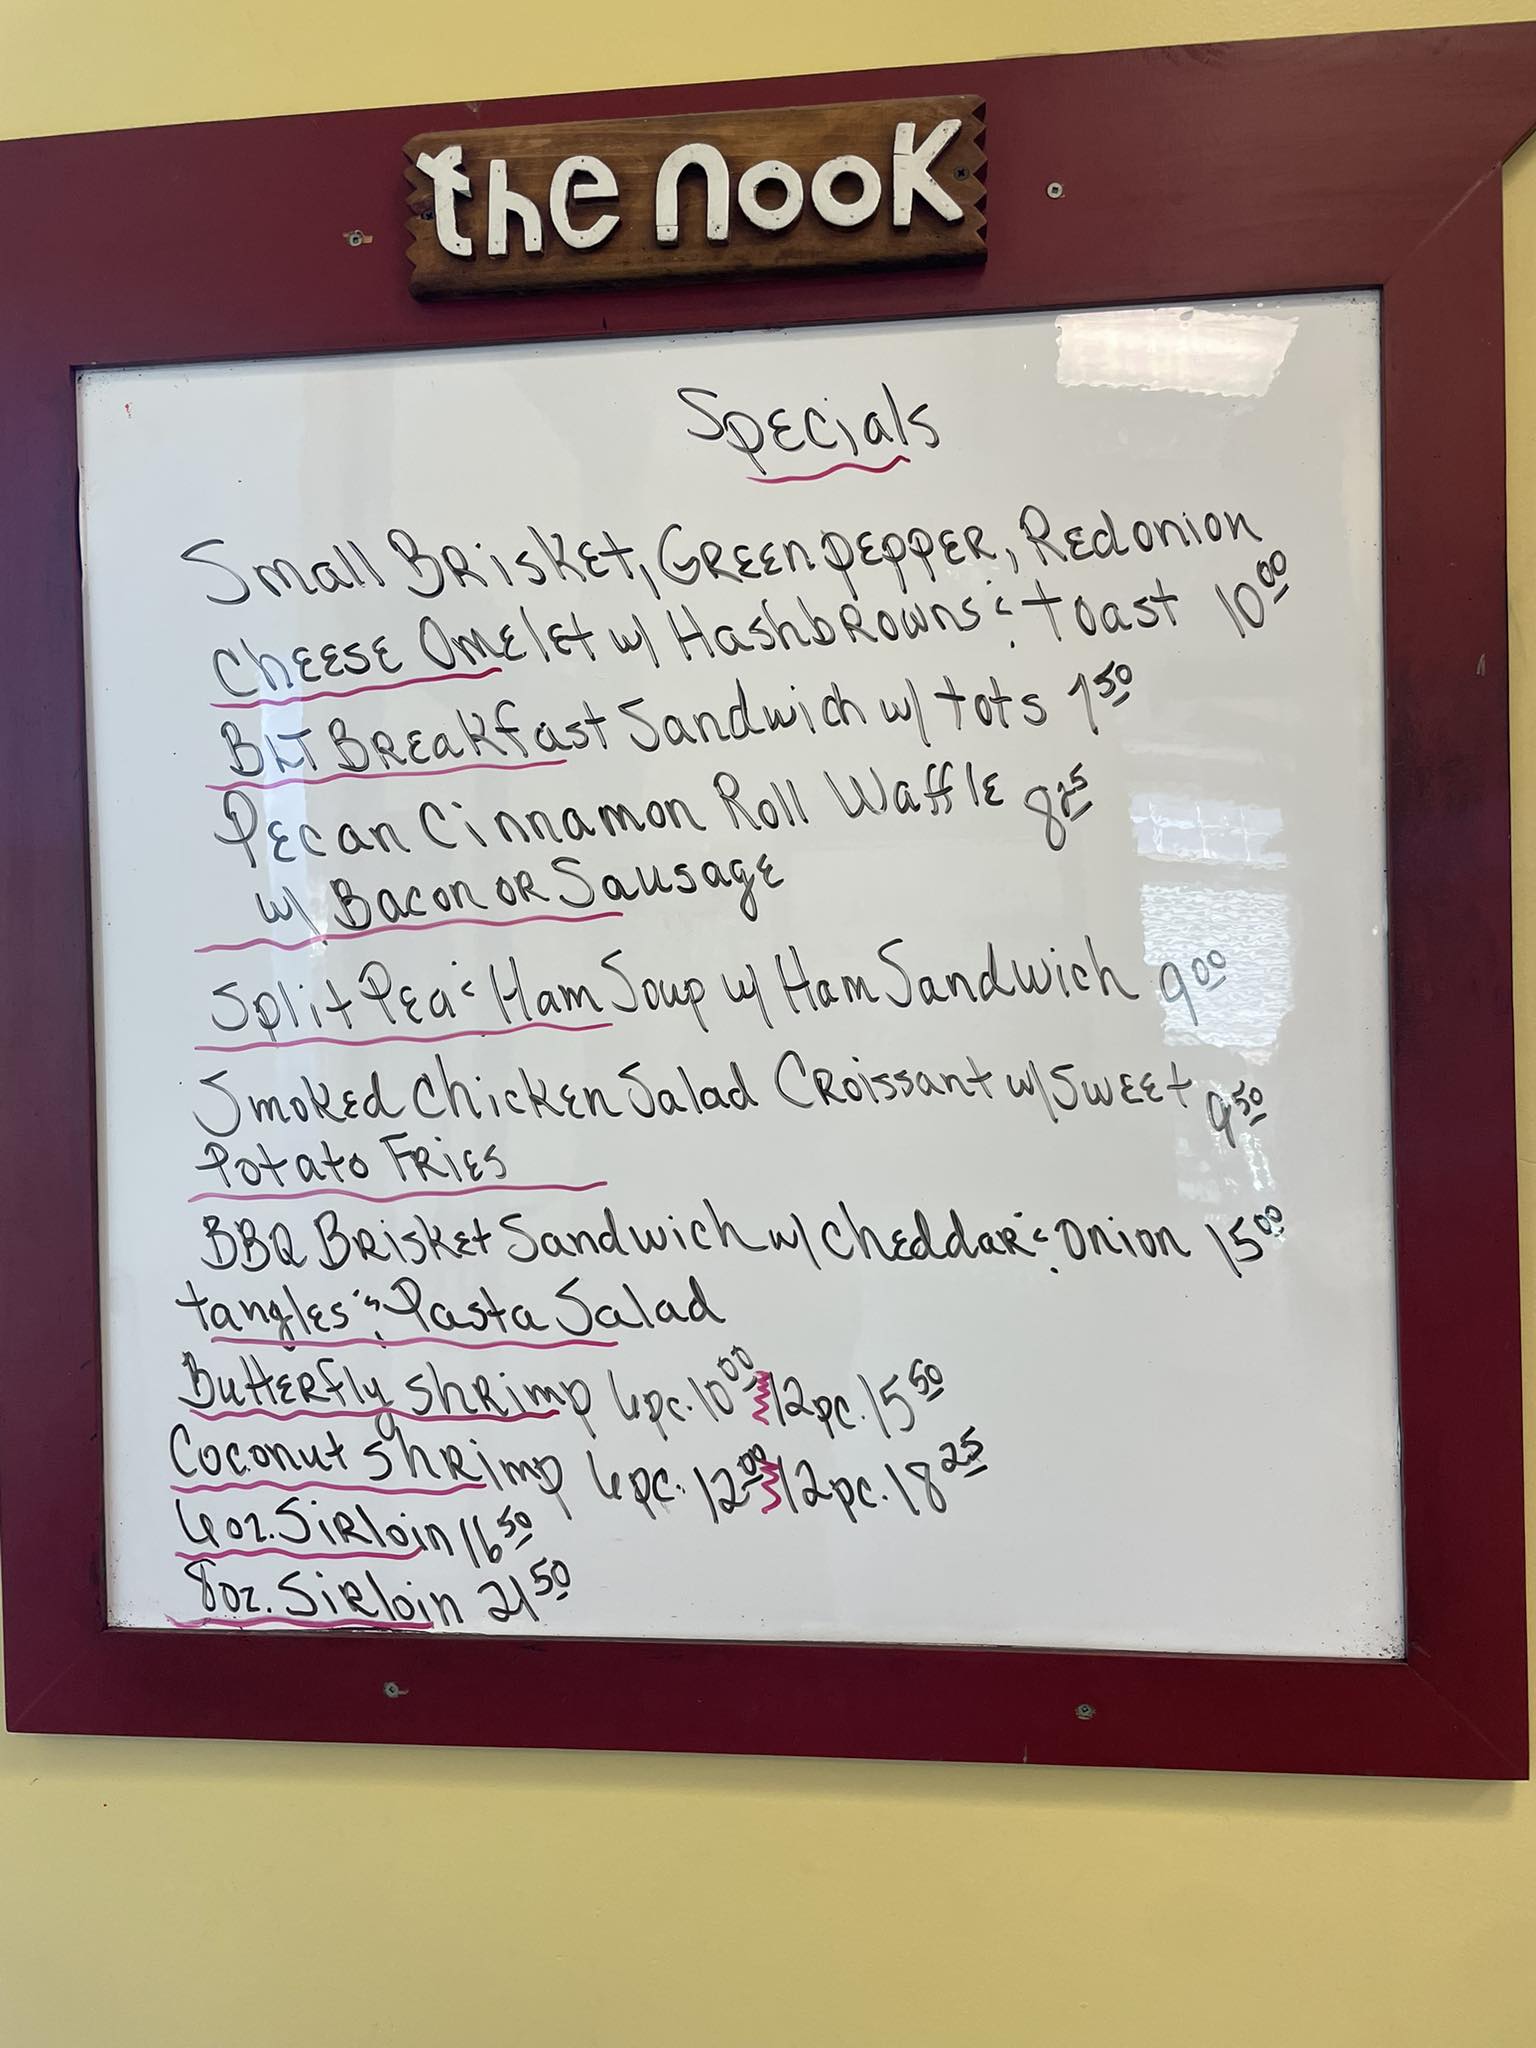 the nook
Specials
Small Brisket, Green pepper, Red onion
Cheese Omelet w/ Hashbrowns & toast 10.00
BLT Breakfast Sandwich w/ tots 7.50
Pecan Cinnamon Roll Waffle 8.25
w/ Bacon or Sausage
Split Pea & Ham Soup w/ Ham Sandwich 9.00
Smoked Chicken Salad Croissant w/ Sweet 9.50
Potato Fries
BBQ Brisket Sandwich w/ Cheddar & Onion 15.00
tangles & Pasta Salad
Butterfly Shrimp 6pc. 10.00 12pc. 15.50
Coconut Shrimp 6pc. 12.00 12pc. 18.25
6oz. Sirloin 16.50
8oz. Sirloin 21.50